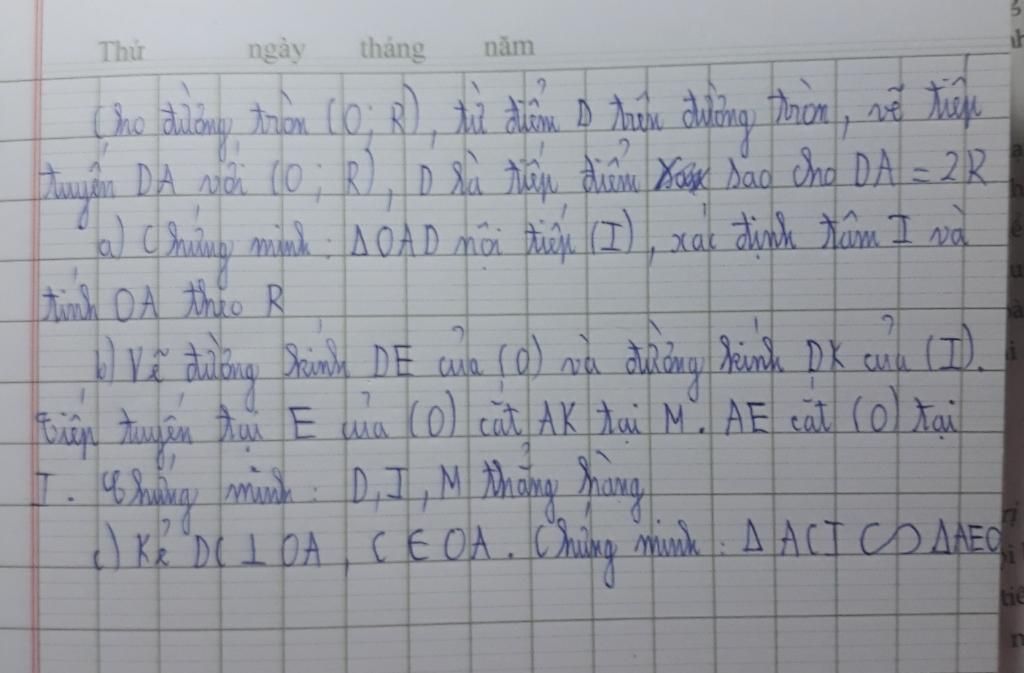 Thứ ngày tháng năm
Cho đường tròn (O; R), từ điểm D trên đường tròn, vẽ tiếp
tuyến DA với (O; R), D là tiếp điểm sao cho DA = 2R
a) Chứng minh: ΔOAD nội tiếp (I), xác định tâm I và
tính OA theo R
b) Vẽ đường kính DE của (O) và đường kính DK của (I).
Tiếp tuyến tại E của (O) cắt AK tại M. AE cắt (O) tại
I. Chứng minh: D, I, M thẳng hàng
c) Kẻ DC ⊥ OA, C ∈ OA. Chứng minh: Δ ACI ∽ ΔAEO